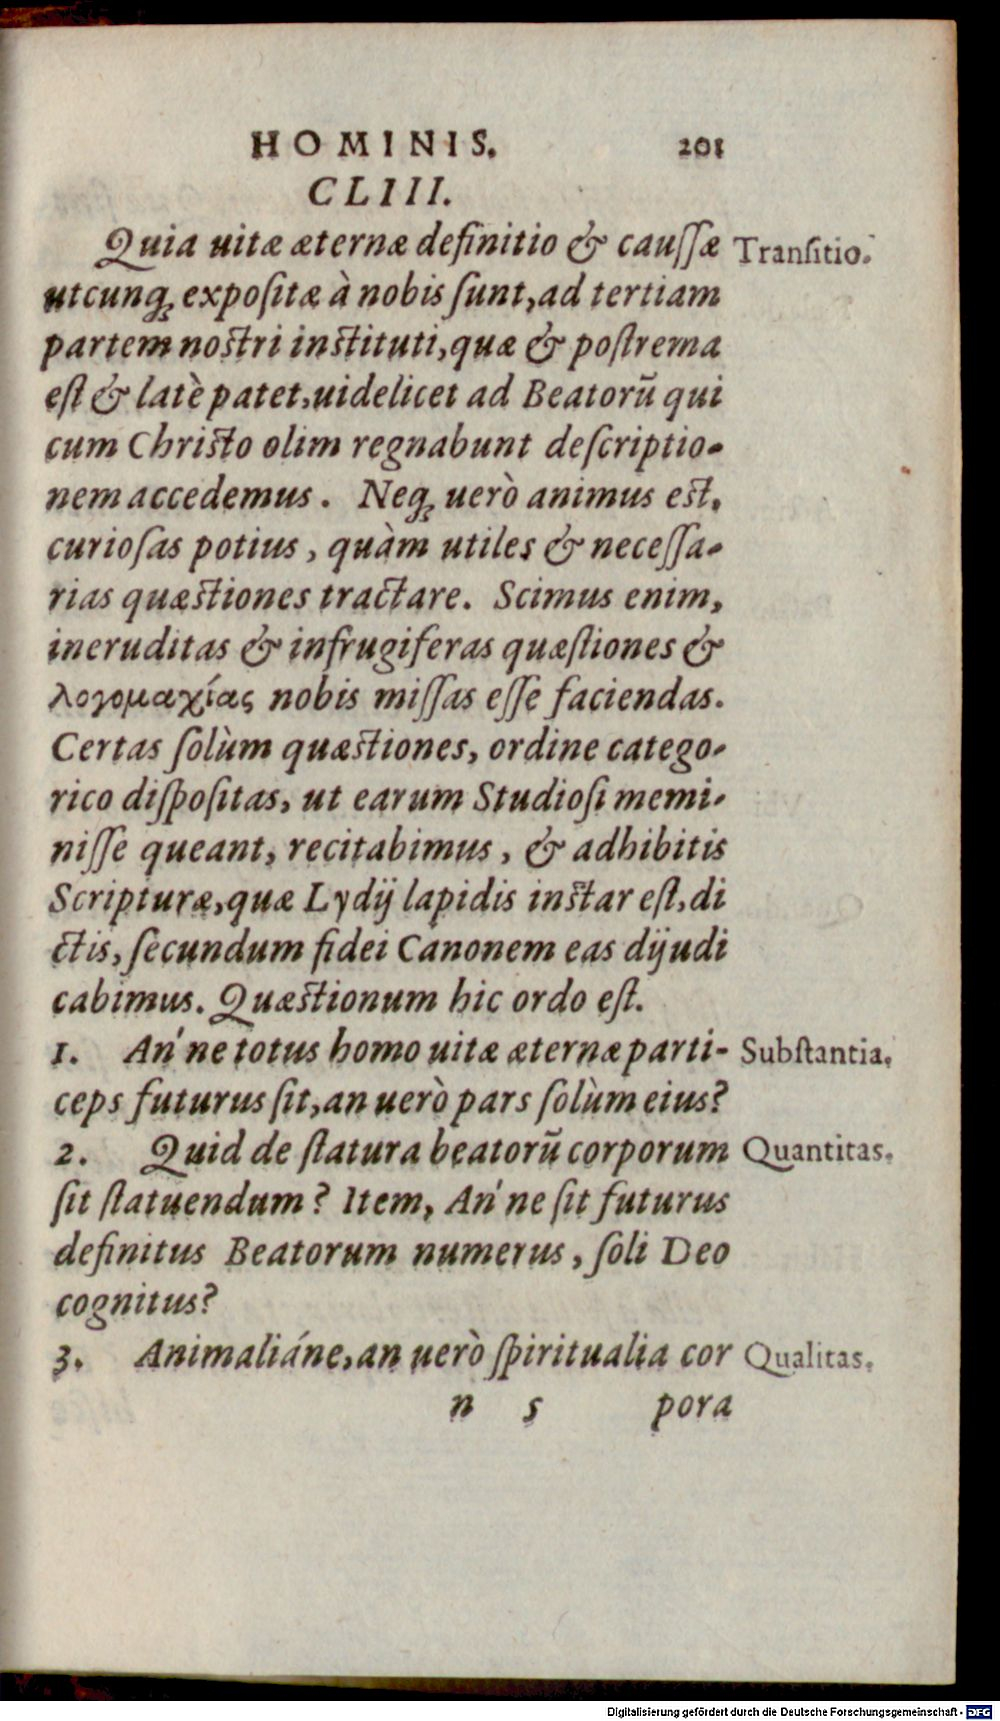 HOMINIS. 201
CLIII.
Quia uitæ æternæ definitio & caussæ Transitio.
utcunqꝫ expositæ à nobis sunt, ad tertiam
partem nostri instituti, quæ & postrema
est & latè patet, uidelicet ad Beatorũ qui
cum Christo olim regnabunt descriptio-
nem accedemus. Neqꝫ uerò animus est,
curiosas potius, quàm utiles & necessa-
rias quæstiones tractare. Scimus enim,
ineruditas & infrugiferas quæstiones &
λογομαχίας nobis missas esse faciendas.
Certas solùm quæstiones, ordine catego-
rico dispositas, ut earum Studiosi memi-
nisse queant, recitabimus, & adhibitis
Scripturæ, quæ Lydij lapidis instar est, di
ctis, secundum fidei Canonem eas dijudi
cabimus. Quæstionum hic ordo est.
1. An'ne totus homo uitæ æternæ parti- Substantia.
ceps futurus sit, an uerò pars solùm eius?
2. Quid de statura beatorũ corporum Quantitas.
sit statuendum? Item, An'ne sit futurus
definitus Beatorum numerus, soli Deo
cognitus?
3. Animaliáne, an uerò spiritualia cor Qualitas.
n 5 pora
Digitalisierung gefördert durch die Deutsche Forschungsgemeinschaft - DFG